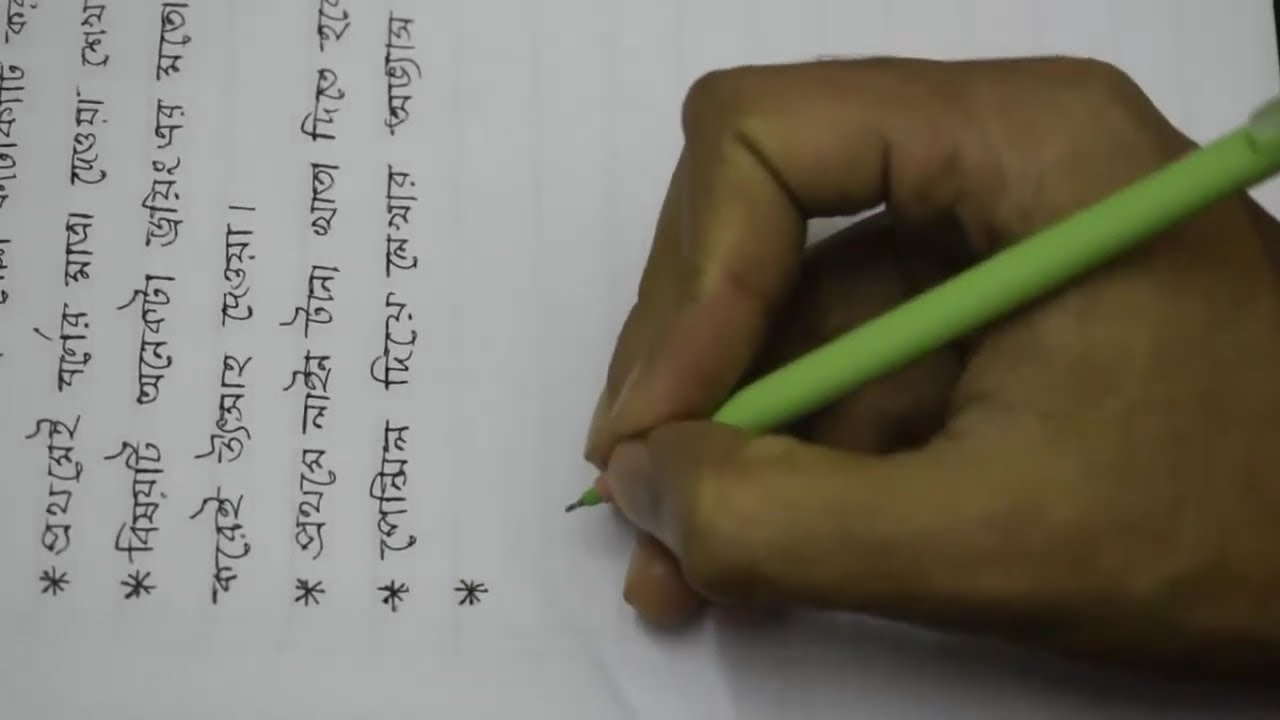 * প্রথমেই বর্ণের মাত্রা দেওয়া শেখ
* বিষয়টি অনেকটা ড্রয়িং এর মতো
করেই উৎসাহ দেওয়া।
* প্রথমে লাইন টানা খাতা দিতে হবে
* পেন্সিল দিয়ে লেখার অভ্যাস
*